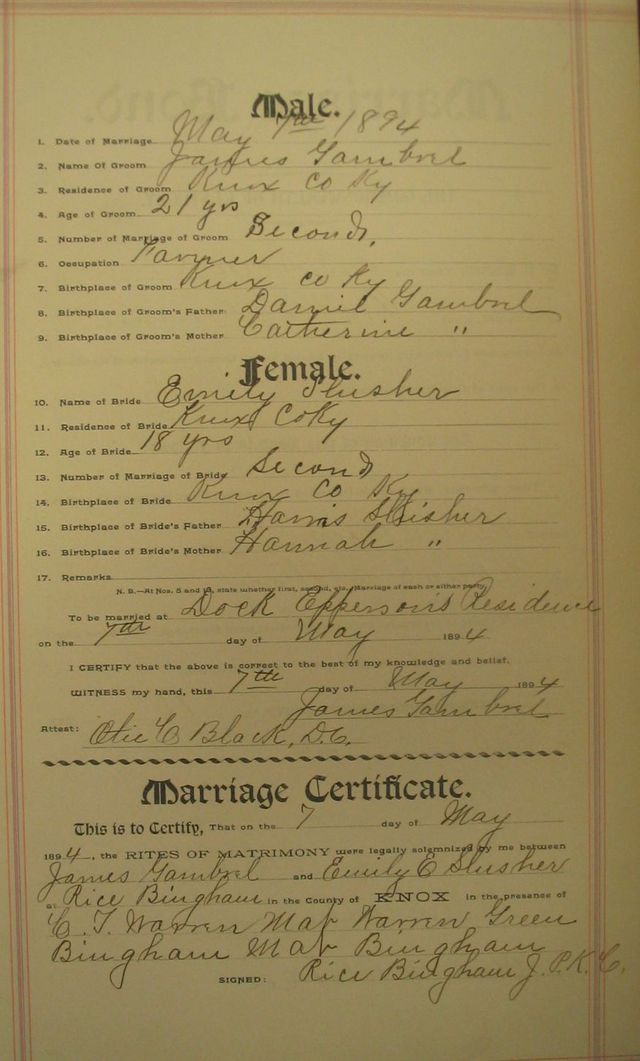 Male.
1. Date of Marriage May 7th 1894
2. Name Of Groom James Gambrel
3. Residence of Groom Knox Co Ky
4. Age of Groom 21 yrs
5. Number of Marriage of Groom Second,
6. Occupation Farmer
7. Birthplace of Groom Knox Co Ky
8. Birthplace of Groom's Father Daniel Gambrel
9. Birthplace of Groom's Mother Catherine "
Female.
10. Name of Bride Emily Slusher
11. Residence of Bride Knox Co Ky
12. Age of Bride 18 yrs
13. Number of Marriage of Bride Second
14. Birthplace of Bride Knox Co Ky
15. Birthplace of Bride's Father Harris Slusher
16. Birthplace of Bride's Mother Hannah "
17. Remarks
N. B.—At Nos. 5 and 13, state whether first, second, etc., Marriage of each or either party.
To be married at Dock Epperson's Residence
on the 7th day of May 1894
I CERTIFY that the above is correct to the best of my knowledge and belief.
WITNESS my hand, this 7th day of May 1894
James Gambrel
Attest: Black, D.C.
Marriage Certificate.
This is to Certify, That on the 7 day of May
1894, the RITES OF MATRIMONY were legally solemnized by me between
James Gambrel and Emily E Slusher
at Rice Bingham in the County of KNOX in the presence of
C. T. Warren Mat Warren Green
Bingham Mat Bingham
SIGNED: Rice Bingham J. P. K. C.